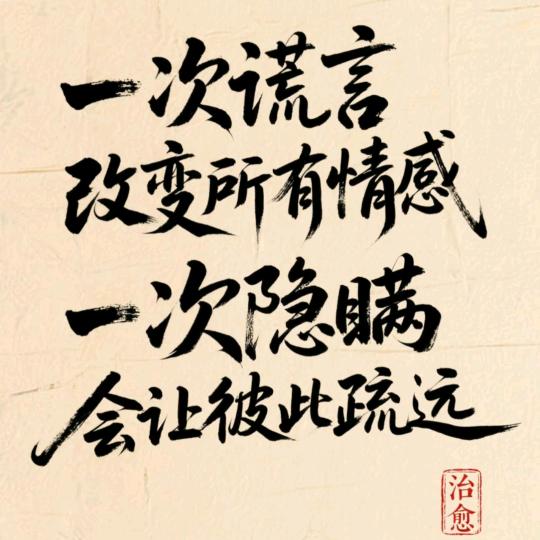 一次谎言
改变所有情感
一次隐瞒
会让彼此疏远
治愈